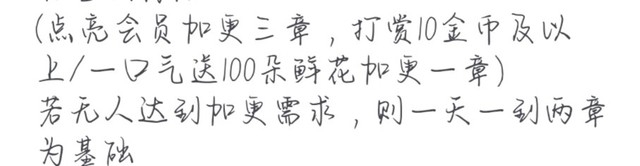 (点亮会员加更三章，打赏10金币及以
上/一口气送100朵鲜花加更一章)
若无人达到加更需求，则一天一到两章
为基础